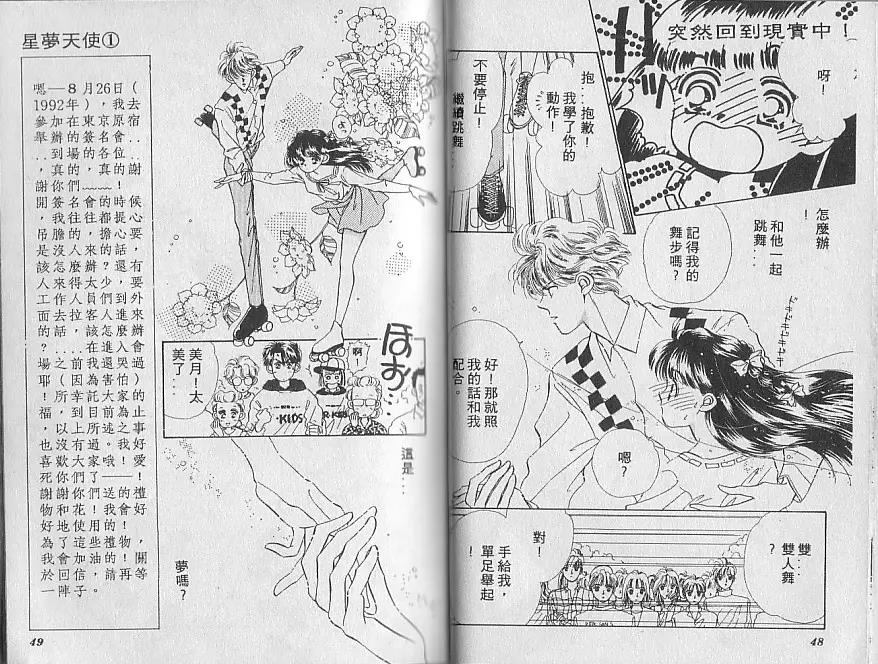 突然回到現實中！
呀！
抱…抱歉！
我學了你的
動作！
不要停止！
繼續跳舞
怎麼辦
！
和他一起
跳舞…
記得我的
舞步嗎？
ドキドキドキドキ
好！那就照
我的話和我
配合。
嗯？
雙…
雙人舞
？
對！
手給我，
單足舉起
！
48
星夢天使①
嗯—8月26日（
1992年），我去
參加在東京原宿
舉辦的簽名會..
..到場的各位..
，真的，真的謝
謝你們﹏﹏！
開簽名會的時候
，我往往都提心
吊膽的，擔心要
是沒人來的話，
該怎麼辦？還有
人來得太少，要
工作人員們到外
面去拉客人進來
的話，該怎麼辦
？....在進入會
場之前我還哭過
耶！（因為害怕）
所幸託大家的
福，到目前為止
，以上所述之事
也沒有過。我好
喜歡大家哦！愛
死你們了——！
謝謝你們送的禮
物和花！我會好
好地使用的！
為了這些禮物，
我會加油的！關
於回信，請再等
一陣子。
啊！
美月！太
美了…
KIDS
R·KIDS
ほお…
這是…
夢嗎？
49